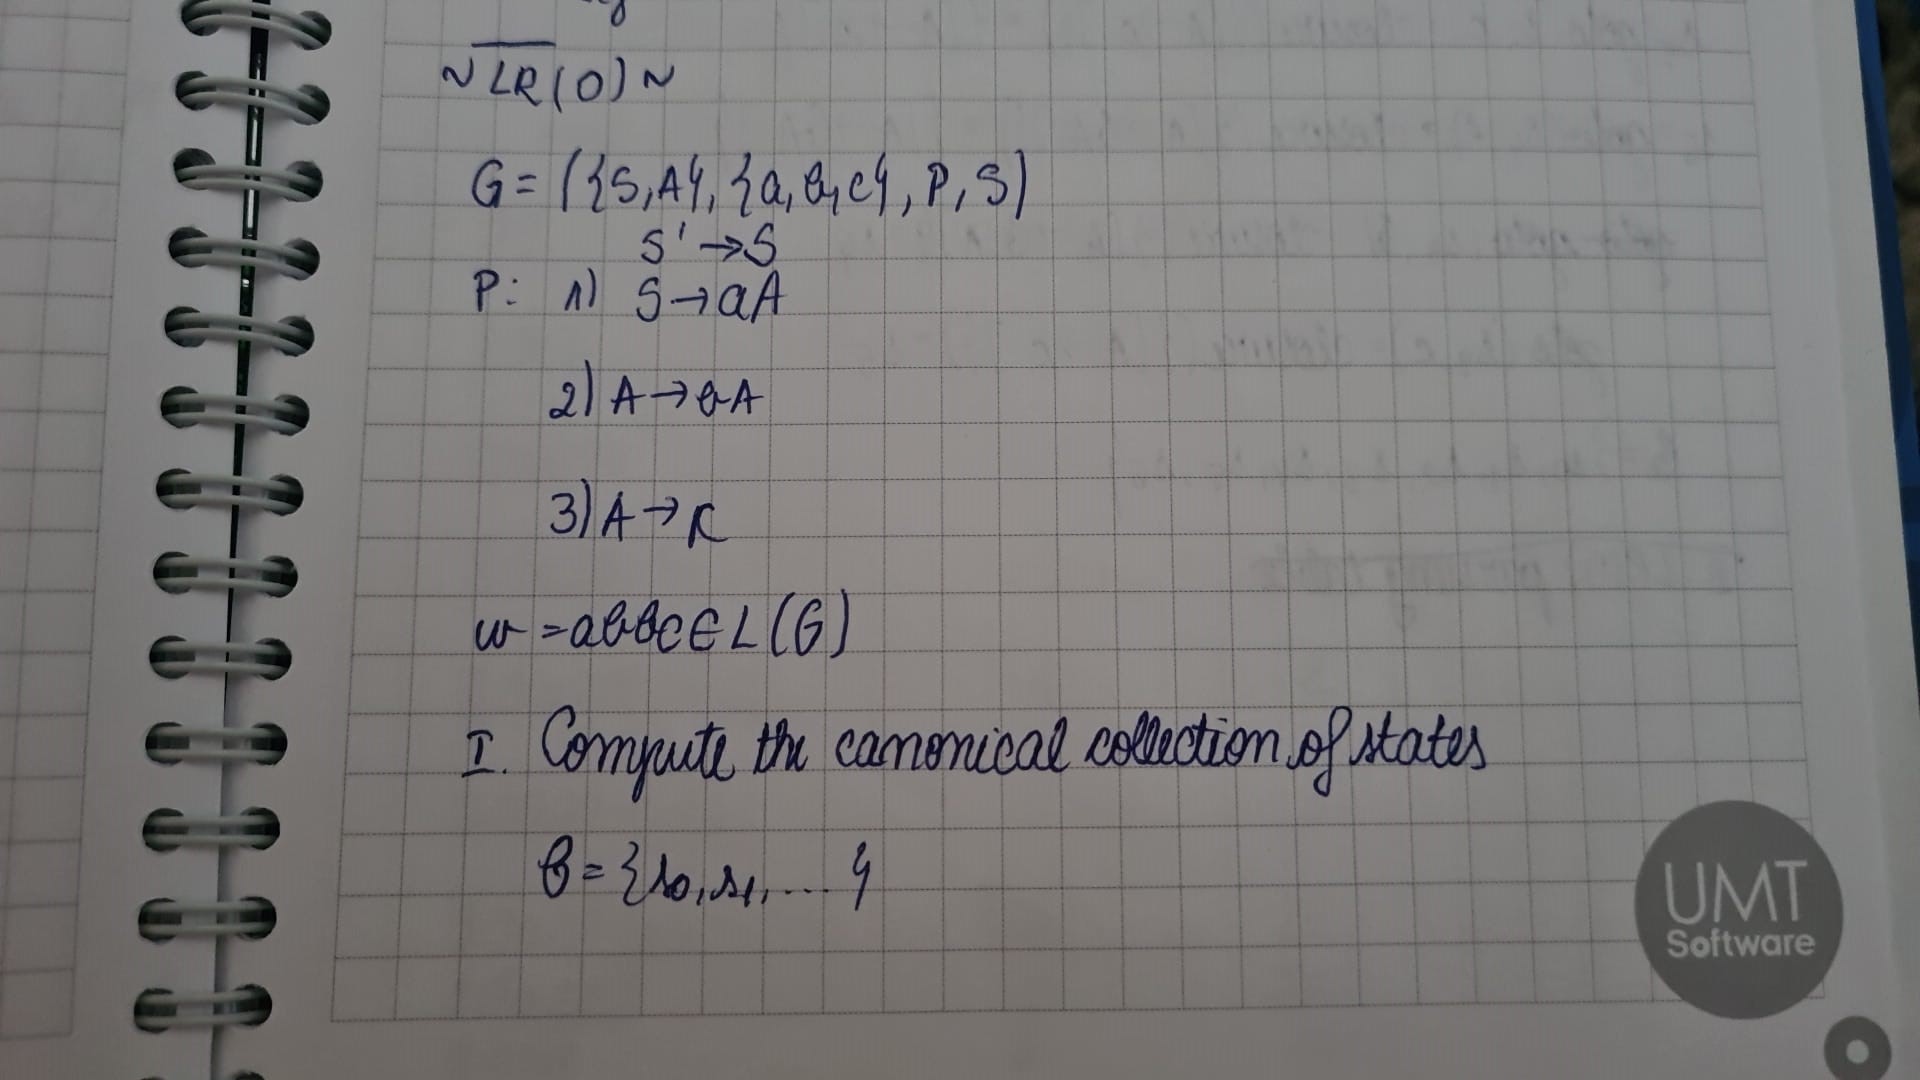 ~ LR(0) ~
G = ({S, A}, {a, b, c}, P, S)
S' → S
P: 1) S → aA
2) A → bA
3) A → c
w = abbc ∈ L(G)
I. Compute the canonical collection of states
C = {s0, s1, ... }
UMT
Software